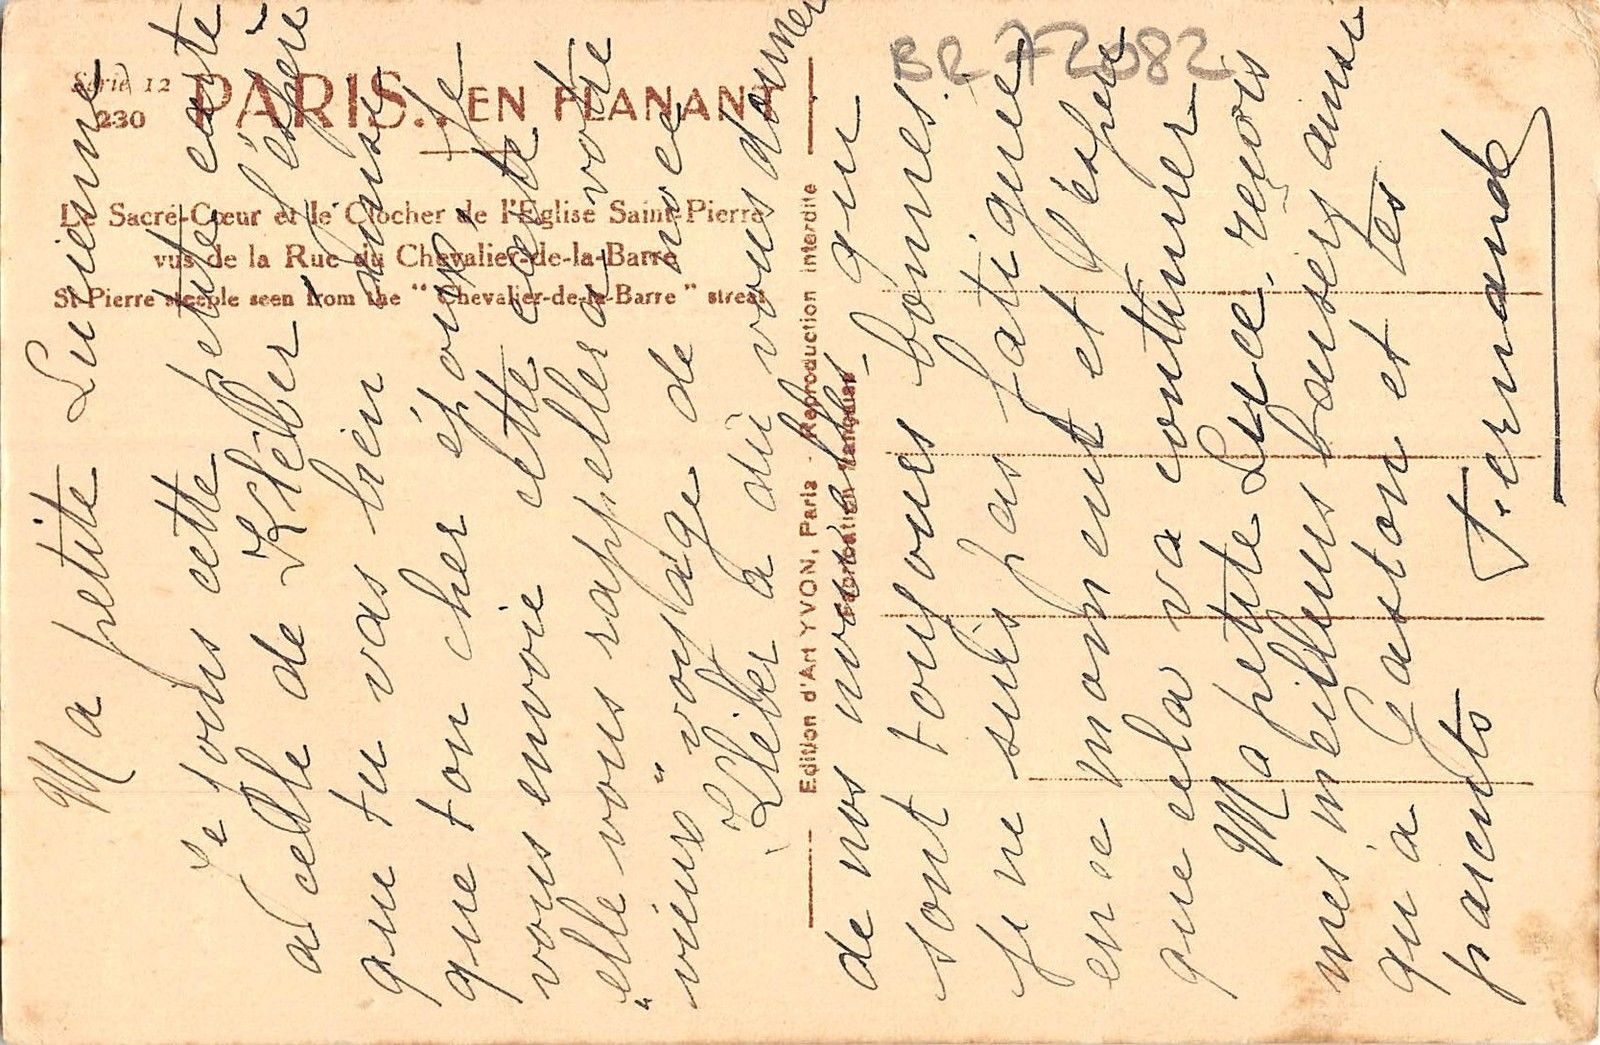 Série 12
230
PARIS... EN FLANANT
Le Sacré-Cœur et le Clocher de l'Eglise Saint-Pierre
vus de la Rue du Chevalier-de-la-Barre
St-Pierre steeple seen from the "Chevalier-de-la-Barre" street
Edition d'Art YVON, Paris - Reproduction interdite
Fabrication française
BR 72082
Ma petite Lucienne
Je joins cette petite carte
à celle de Kléber, j'espère
que tu vas bien ainsi
que ton cher époux. Je
vous envoie cette carte
"elle vous rappellera votre
vieux" voyage de noce
Kléber a dû vous donner
de nos nouvelles qui
sont toujours bonnes.
je ne suis pas fatiguée
en ce moment et j'espère
que cela va continuer
Ma petite Luce, reçois
mes meilleurs baisers ainsi
qu'à Gaston et tes
parents
Fernande